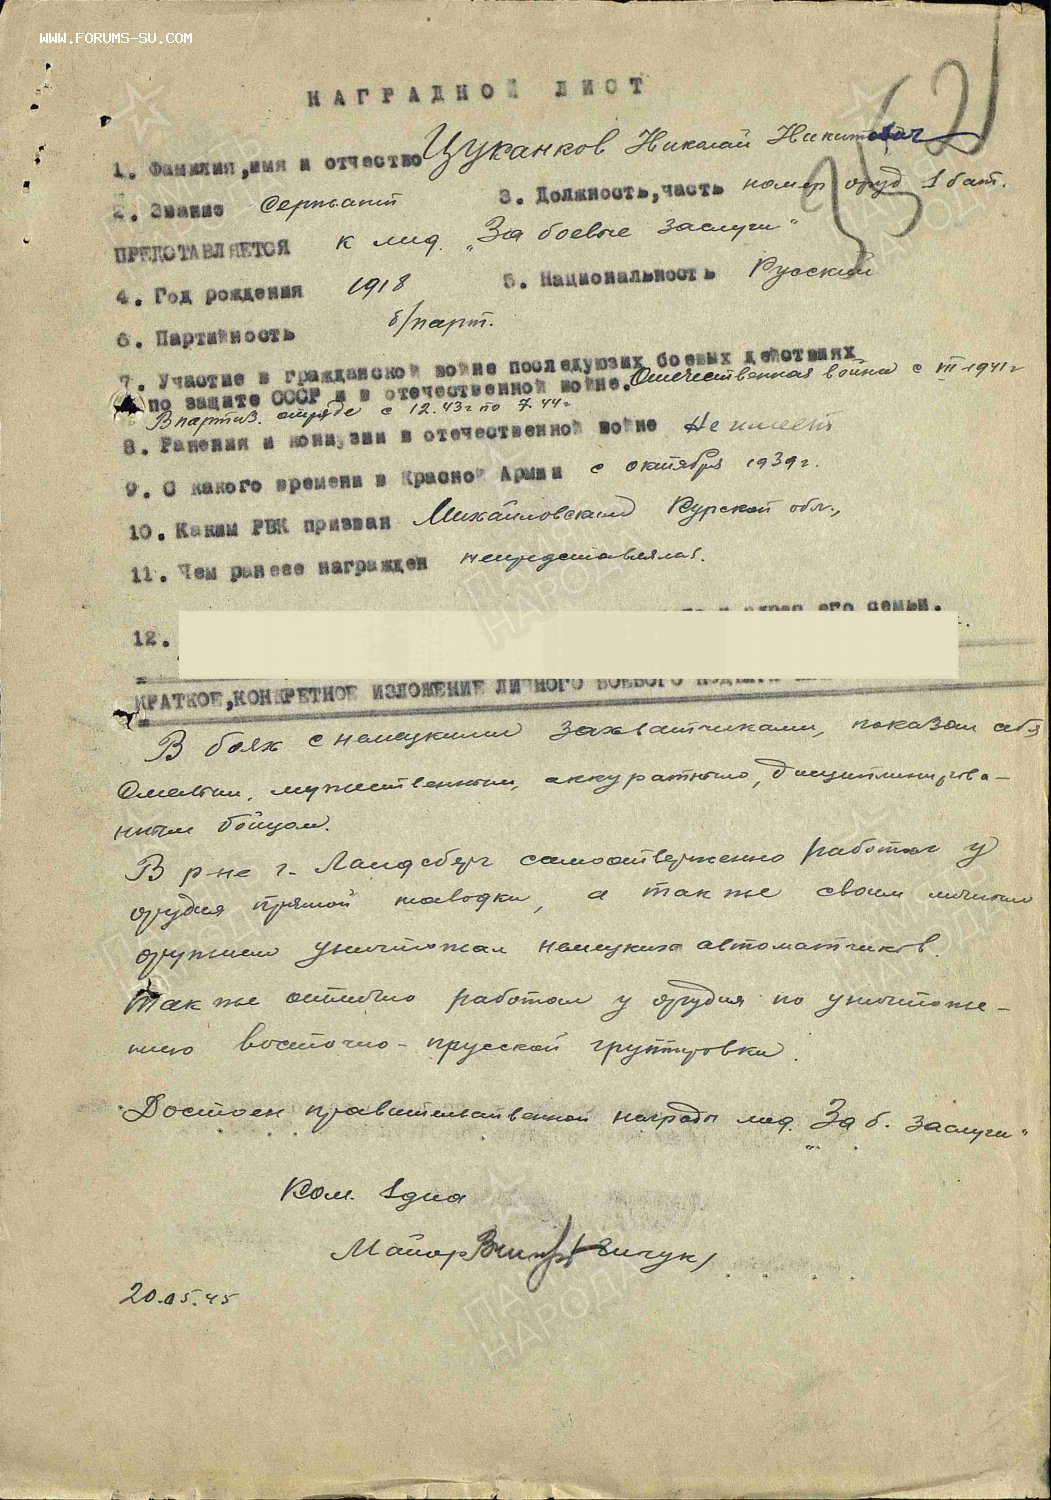 WWW.FORUMS-SU.COM
52
НАГРАДНОЙ ЛИСТ
1. Фамилия,имя и отчество Цуканков Николай Никитович
2. Звание Сержант 3. Должность,часть номер оруд 1 бат.
ПРЕДСТАВЛЯЕТСЯ к мед. „За боевые заслуги"
4. Год рождения 1918 5. Национальность Русский
6. Партийность б/парт.
7. Участие в гражданской войне последующих боевых действиях
по защите СССР и в отечественной войне. Отечественная война с VII-1941г
В партиз. отряде с 12.43г по 7.44г
8. Ранения и контузии в отечественной войне Не имеет
9. С какого времени в Красной Армии с октября 1939г.
10. Каким РВК призван Михайловский Курской обл.,
11. Чем ранее награжден непредставлялся.
адрес его семьи.
12.
КРАТКОЕ,КОНКРЕТНОЕ ИЗЛОЖЕНИЕ ЛИЧНОГО БОЕВОГО
В боях с немецкими захватчиками, показал себя
смелым, мужественным, аккуратным, дисциплинирова-
нным бойцом.
В р-не г. Ландсберг самоотверженно работал у
орудия прямой наводки, а так же своим личным
оружием уничтожал немецких автоматчиков.
Так же отлично работал у орудия по уничтоже-
нию восточно-прусской группировки.
Достоен правительственной награды мед. „За б. заслуги"
Ком. 1 дна
Майор
20.05.45
ПАМЯТЬ
НАРОДА